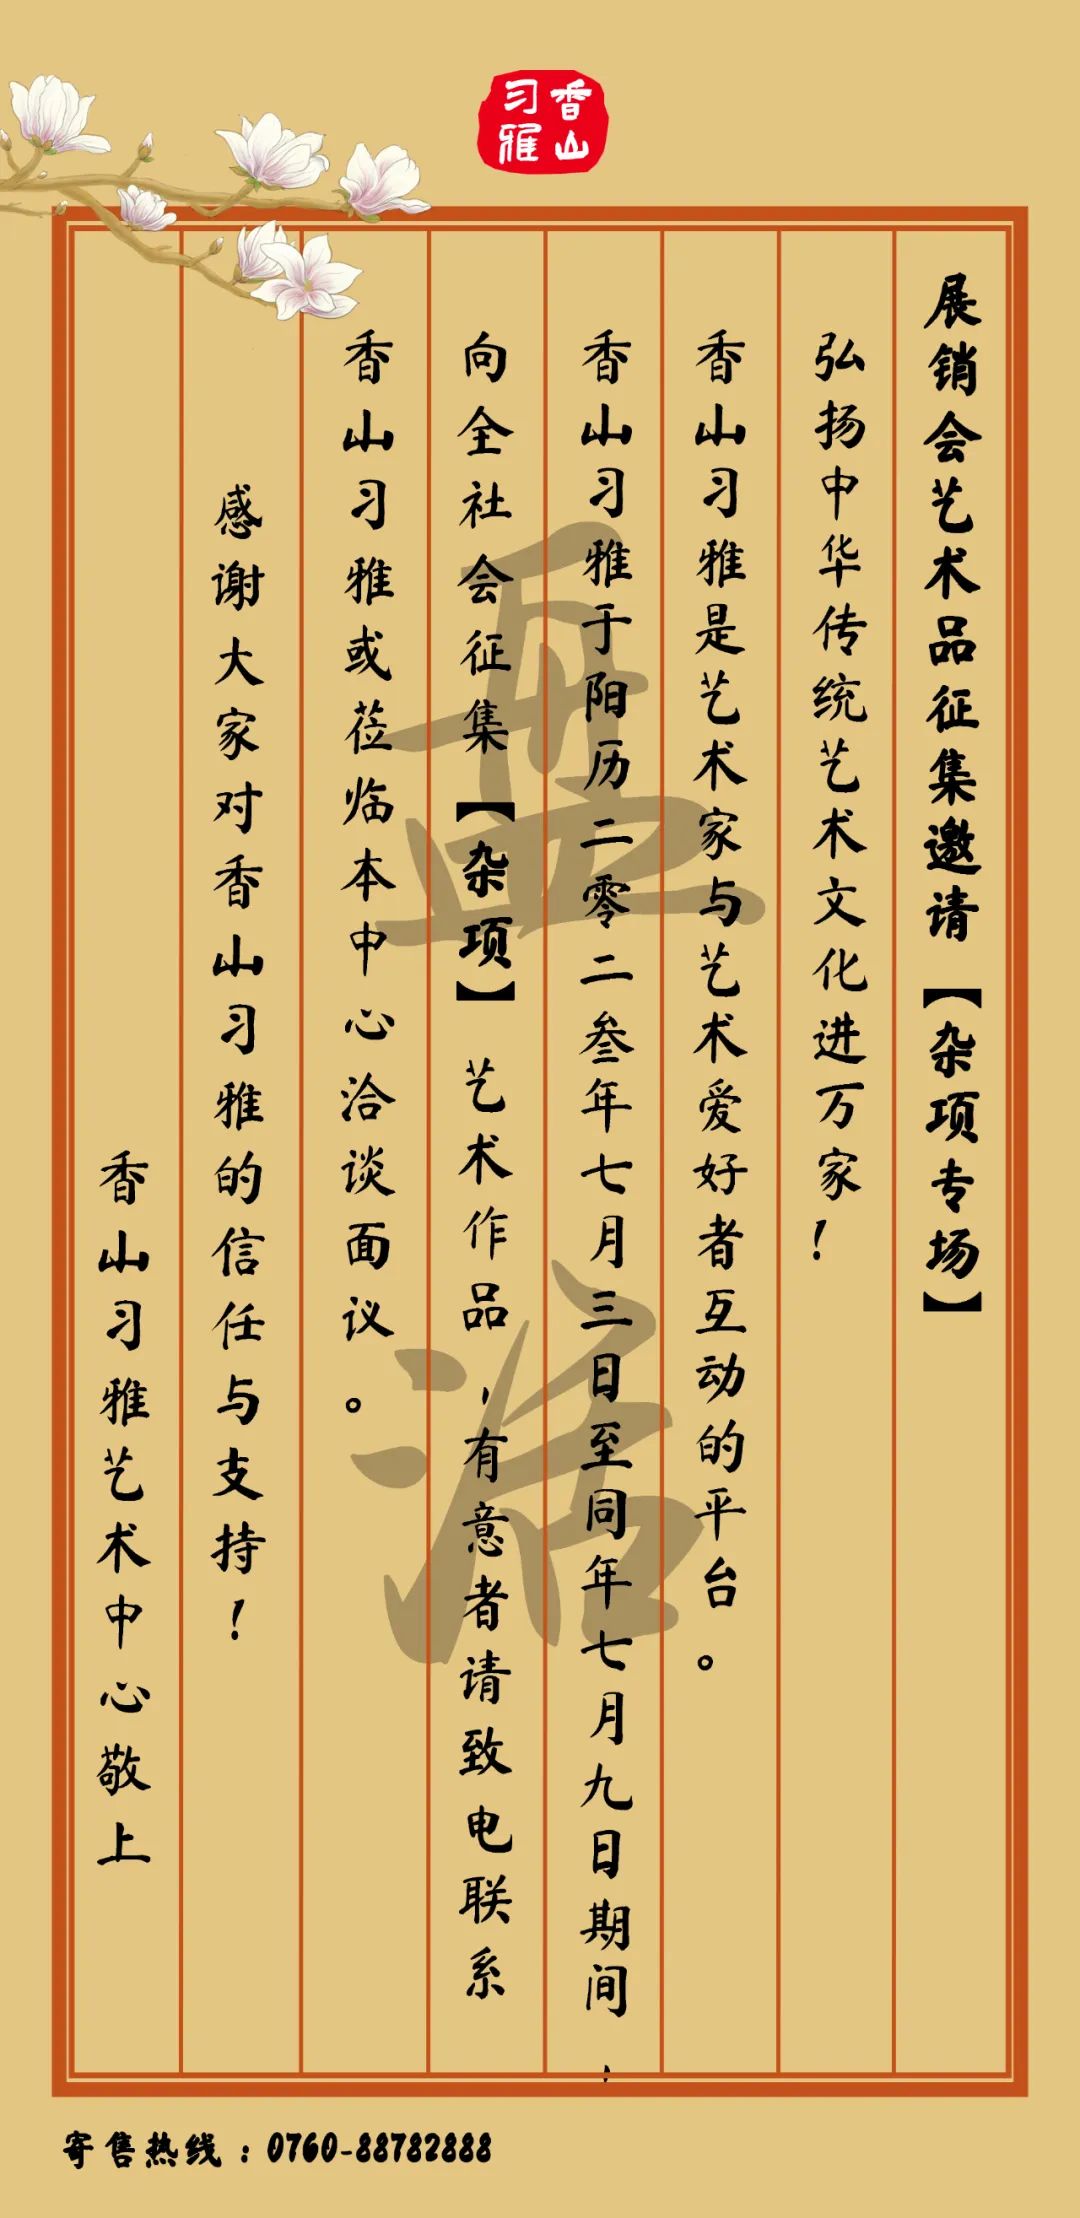 香山
习雅
展销会艺术品征集邀请【杂项专场】
弘扬中华传统艺术文化进万家！
香山习雅是艺术家与艺术爱好者互动的平台。
香山习雅于阳历二零二叁年七月三日至同年七月九日期间，
向全社会征集【杂项】艺术作品，有意者请致电联系
香山习雅或莅临本中心洽谈面议。
感谢大家对香山习雅的信任与支持！
香山习雅艺术中心敬上
盂
活
寄售热线：0760-88782888